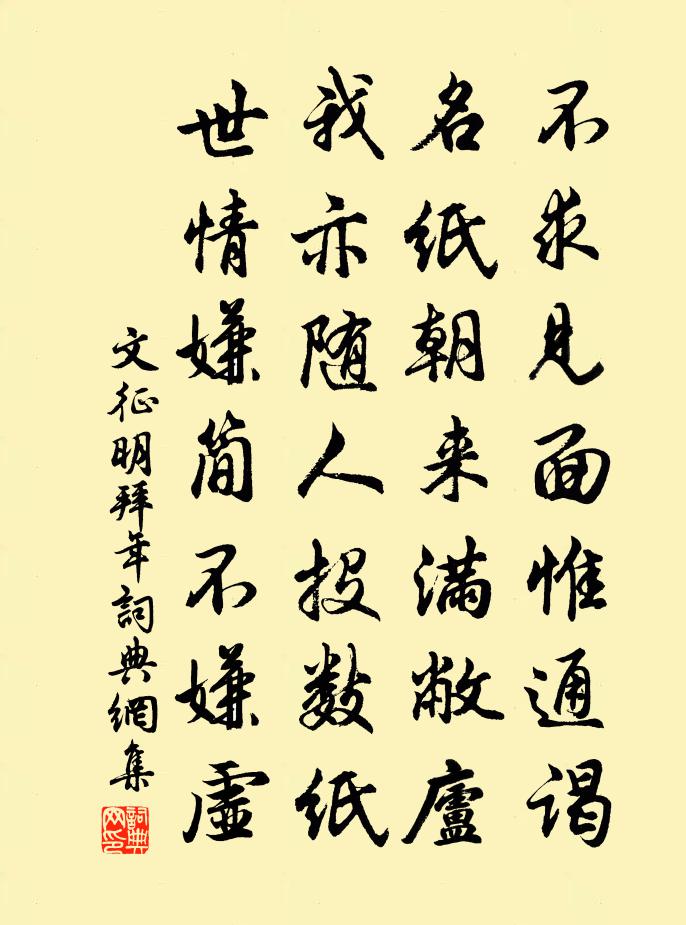 不求見面惟通謁
名紙朝来滿敝廬
我亦随人投数紙
世情嫌簡不嫌虛
文征明拜年詞典網集
詞典網印